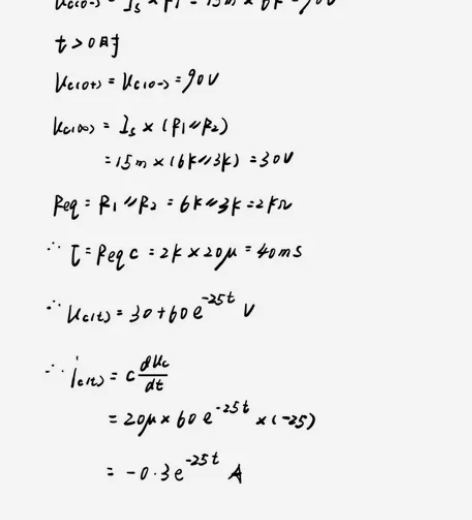 Uc(0-) = Is × R1 = 15m × 6k = 90V
t > 0时
Uc(0+) = Uc(0-) = 90V
Uc(∞) = Is × (R1 // R2)
= 15m × (6k // 3k) = 30V
Req = R1 // R2 = 6k // 3k = 2kΩ
∴ τ = Req C = 2k × 20μ = 40ms
∴ Uc(t) = 30 + 60e^-25t V
∴ ic(t) = C dUc/dt
= 20μ × 60e^-25t × (-25)
= -0.3e^-25t A